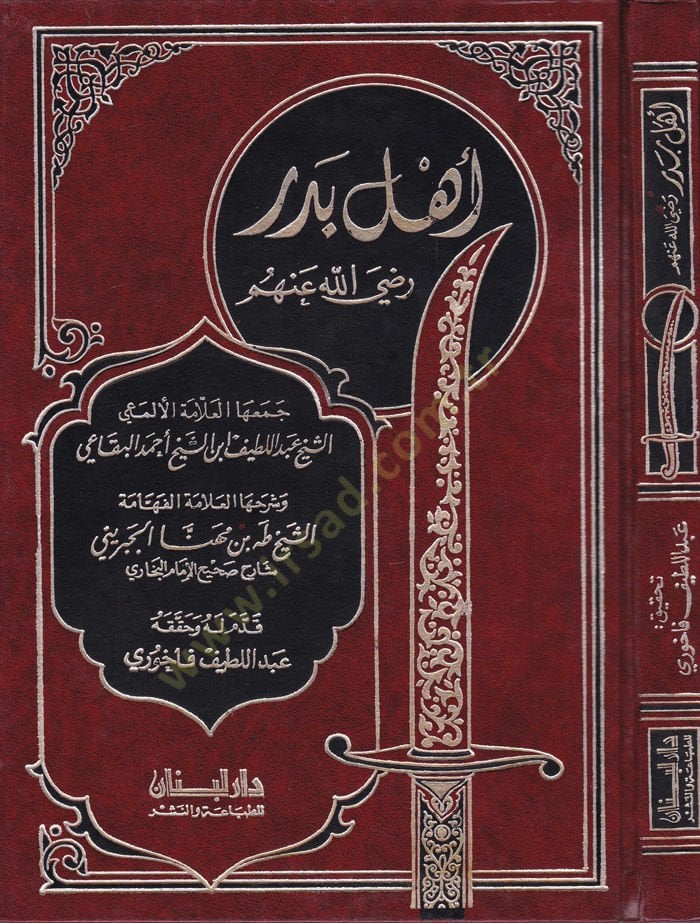 أهل بدر
رضي الله عنهم
جمعها العلامة الألمعي
الشيخ عبد اللطيف ابن الشيخ أحمد البقاعي
وشرحها العلامة الفهامة
الشيخ طه بن مهنا الجبريني
شارح صحيح الإمام البخاري
قدم له وحققه
عبد اللطيف فاخوري
دار لبنان
للطباعة والنشر
أهل بدر رضي الله عنهم
تحقيق:
عبد اللطيف فاخوري
دار لبنان
للطباعة والنشر
www.irsad.com.tr